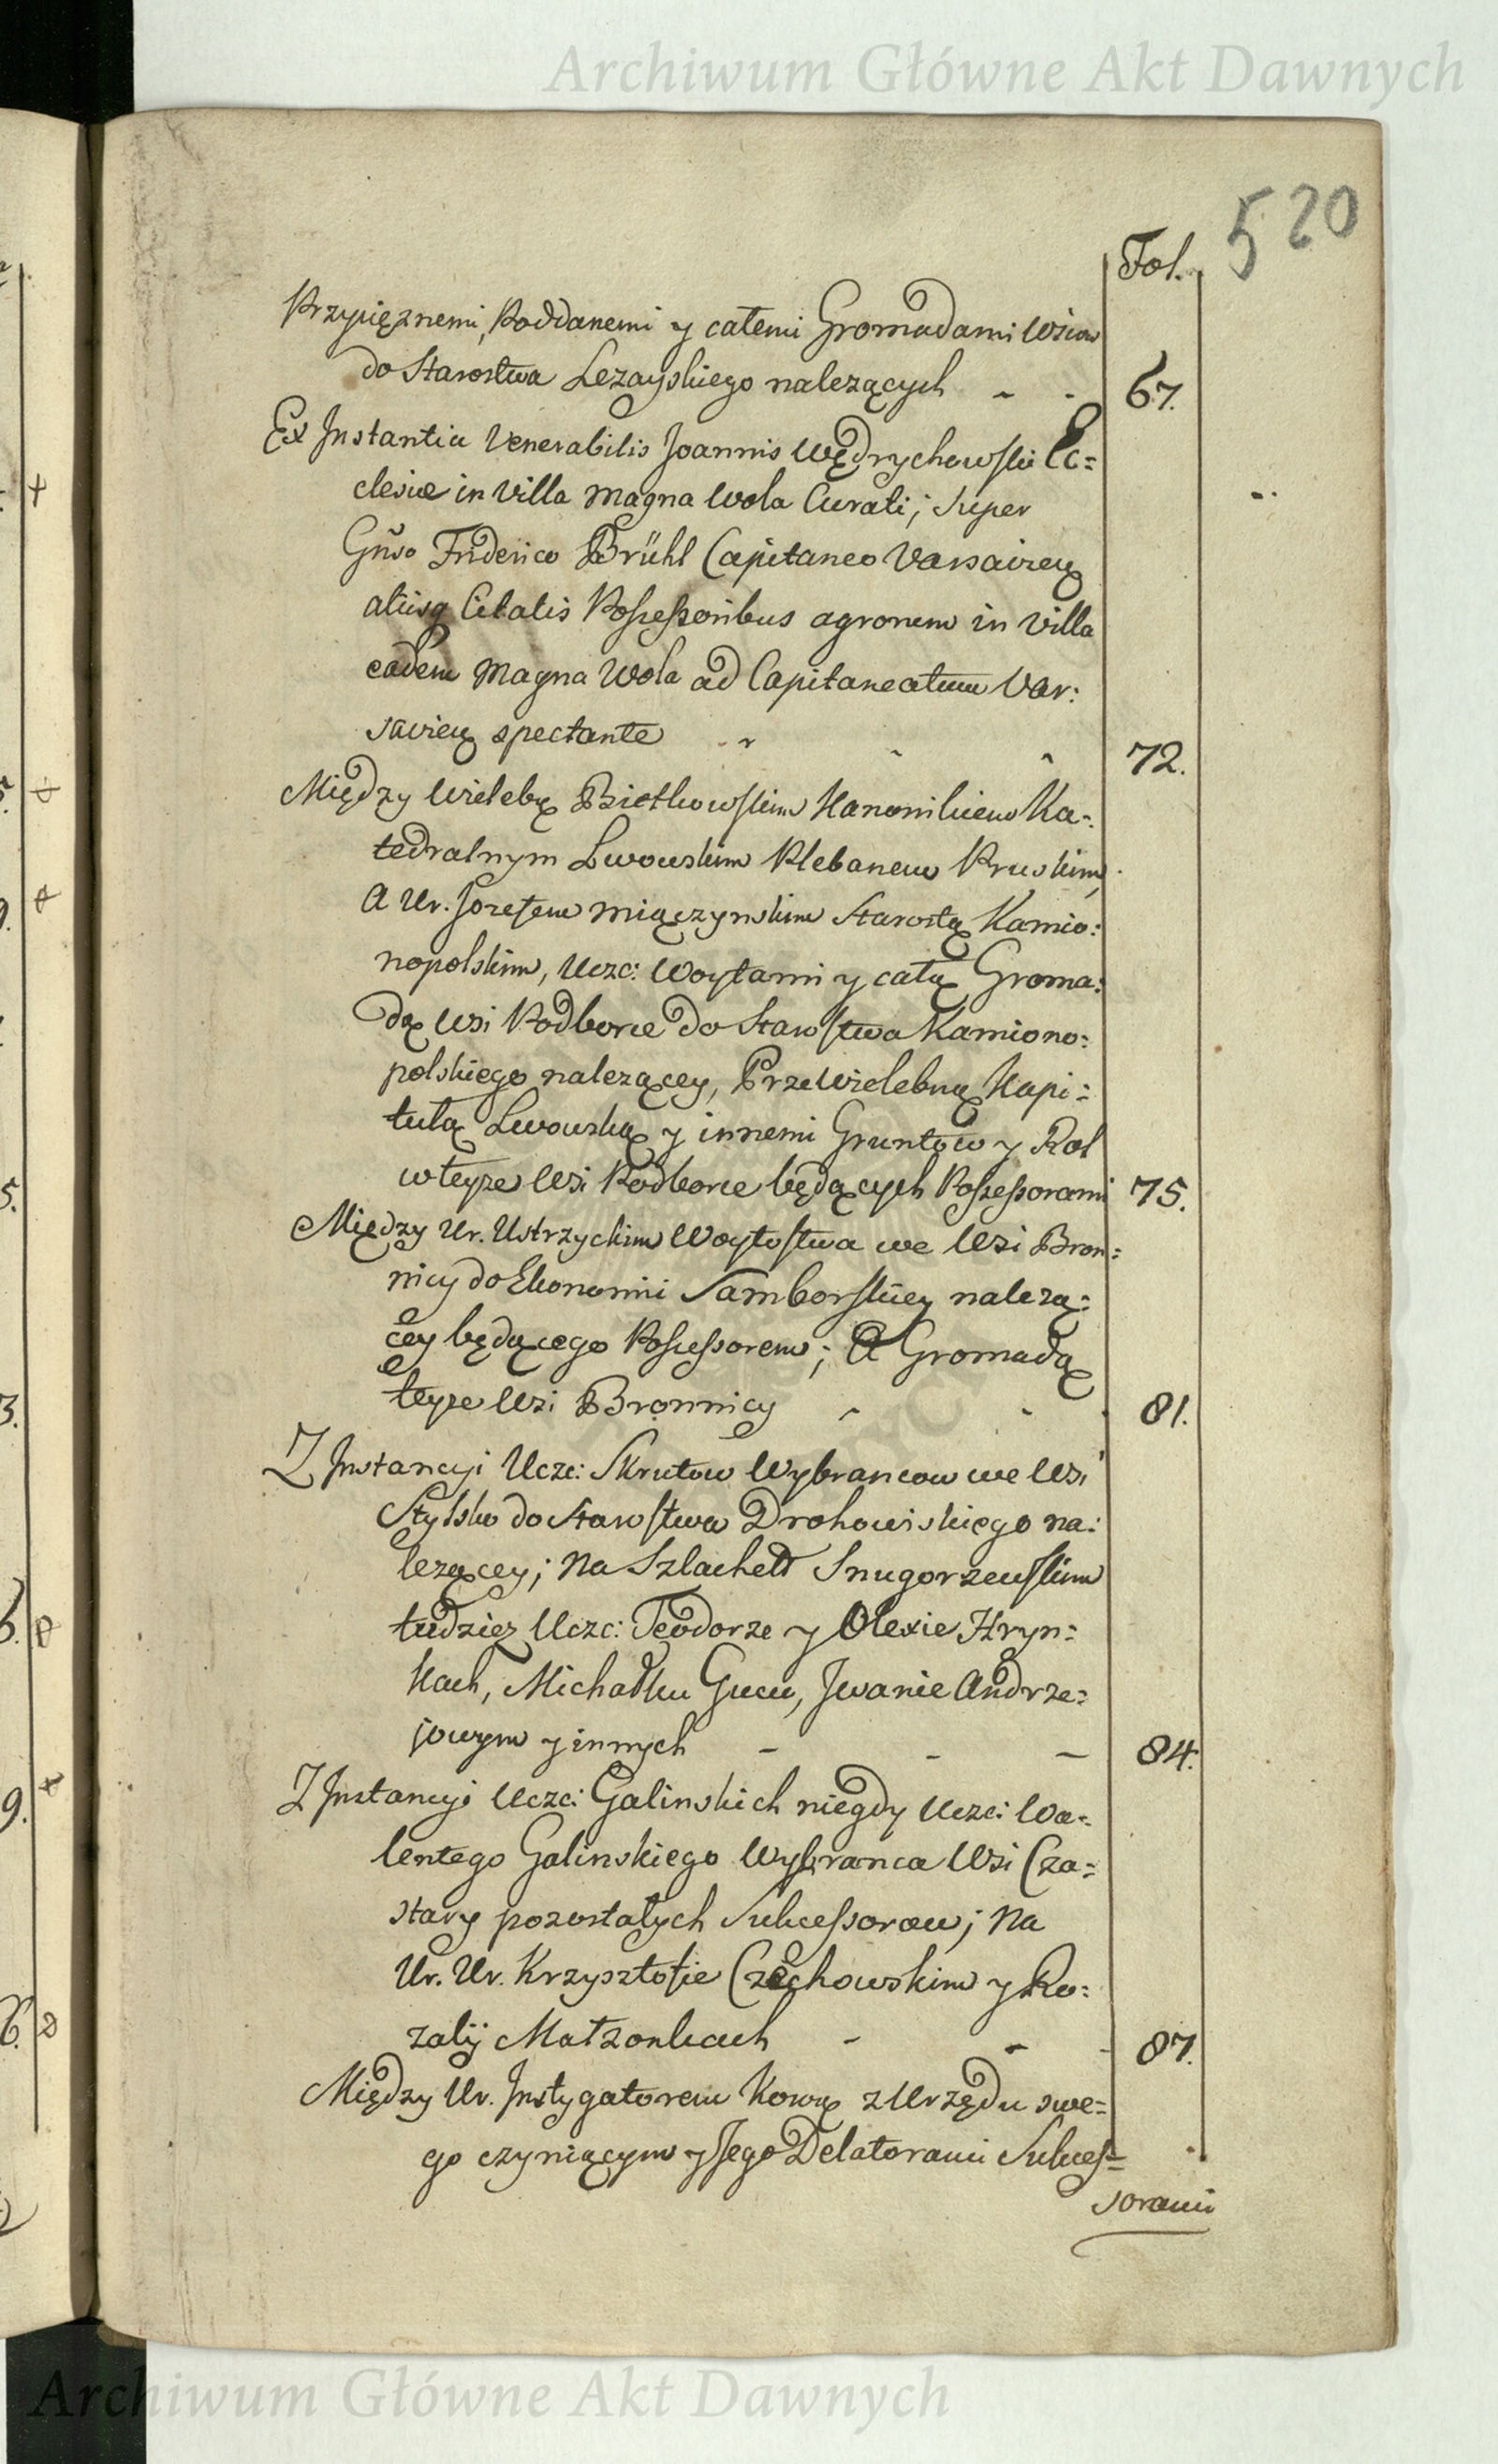 Archiwum Główne Akt Dawnych
520
Fol.
Przysięznemi, Poddanemi y całemi Gromadami Wsiow
do Starostwa Lezayskiego nalezących - - 67.
Ex Instantia Venerabilis Joannis Wędrychowski Ec=
clesiæ in Villa Magna Wola Curati; super
Gñso Friderico Brühl Capitaneo Varsavien
aliisq Citatis Possessoribus agrorum in Villa
eadem Magna Wola ad Capitaneatum Var:
savien spectante - - - 72.
Między Wieleb Bietkowskim Kanonikiem Ka=
tedralnym Lwowskim Plebanem Pruskim,
A Ur. Jozefem Miączynskim Starostą Kamio:
nopolskim, Uczc: Woytami y całą Groma:
dą Wsi Podborce do Starostwa Kamiono:
polskiego nalezącey, Przewielebną Kapi:
tułą Lwowską y innemi Gruntow y Rol
w teyze Wsi Podborce będących Possessorami 75.
Między Ur. Ustrzyckim Woytostwa we Wsi Bron:
nicy do Ekonomii Samborskiey nalezą:
cey będącego Possessorem; A Gromadą
teyze Wsi Bronnicy - - - 81.
Z Instancyi Uczc: Skrutow Wybrancow we Wsi
Stylsko do Starostwa Drohowiskiego na:
lezącey; Na Szlachett Snugorzewskim
tudziez Uczc: Teodorze y Olexie Hryn:
kach, Michałku Gucu, Iwanie Andrze:
jowym y innych - - - 84.
Z Instancyi Uczc: Galinskich niegdy Uczc: Wa=
lentego Galinskiego Wybranca Wsi Cza=
stary pozostałych Sukcessorow; Na
Ur. Ur. Krzysztofie Czechowskim y Ro:
zalij Małzonkach - - - 87.
Między Ur. Instygatorem Kor z Urzędu swe=
go czyniącym y Jego Delatorami Sukces=
sorami
Archiwum Główne Akt Dawnych